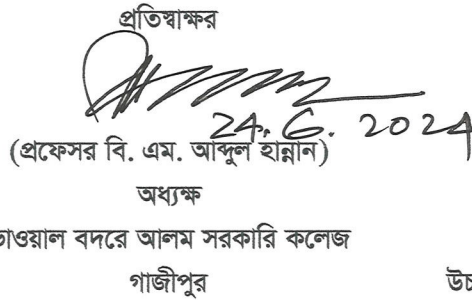 প্রতিস্বাক্ষর
24.6.2024
(প্রফেসর বি. এম. আব্দুল হান্নান)
অধ্যক্ষ
ভাওয়াল বদরে আলম সরকারি কলেজ
গাজীপুর